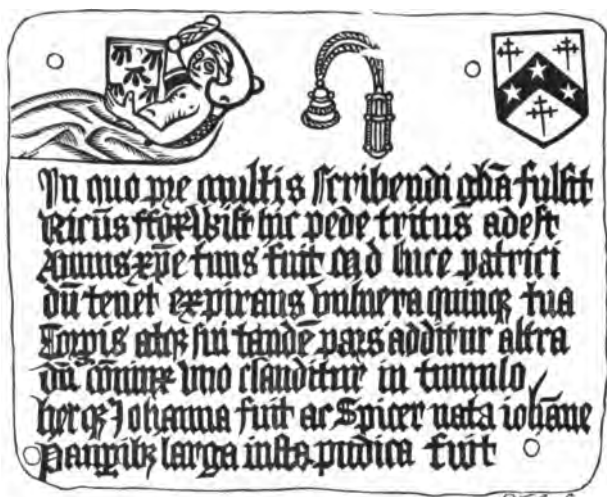 In quo pre multis scribendi gl̄ia fulsit
Ricūs ffoxwist hic pede tritus adest
Annus xp̄e tuus fuit M d luce patrici
dū tenet expirans vulnera quinqꝫ tua
Corpis atqꝫ sui tandē pars additur altra
dū cōiunx vno clauditur in tumulo
hec qꝫ Johanna fuit ac Spicer nata iohāne
Paupibꝫ larga iusta pudica fuit